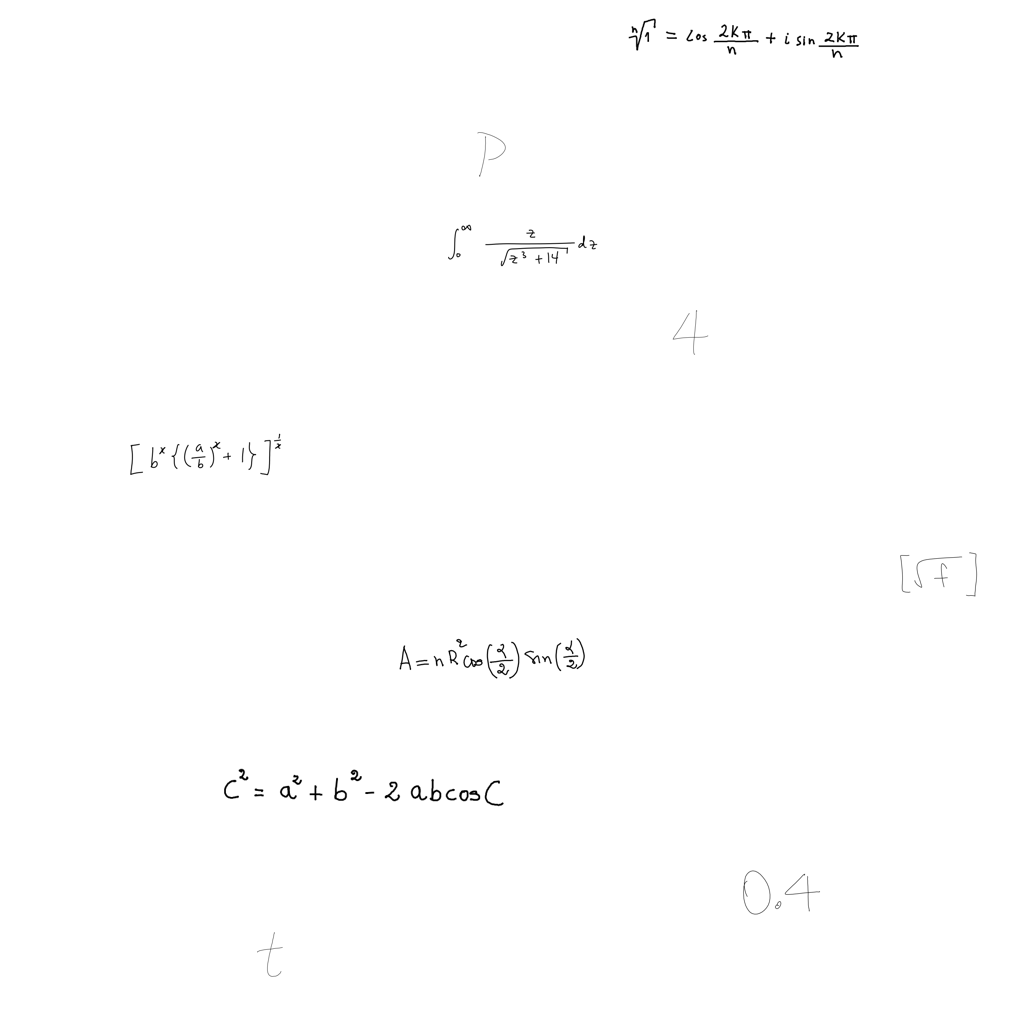 \sqrt[n]{1} = \cos \frac{2K\pi}{n} + i \sin \frac{2K\pi}{n}
P
\int_{0}^{\infty} \frac{z}{\sqrt{z^{3}+14}} dz
4
[b^{x}\{(\frac{a}{b})^{x}+1\}]^{\frac{1}{x}}
[\sqrt{f}]
A = nR^{2} \cos(\frac{\alpha}{2}) \sin(\frac{\alpha}{2})
C^{2} = a^{2} + b^{2} - 2 a b \cos C
0.4
t